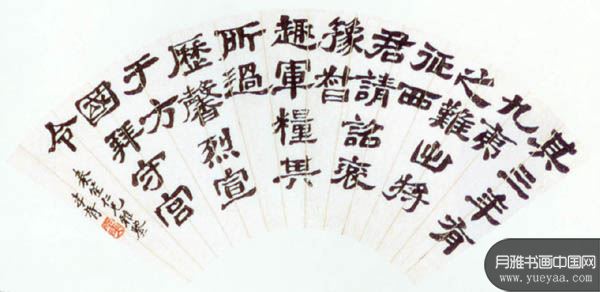 其三年有
九夷
之難出將
征西
君請
豫督
趣軍糧具
所過
歷馨烈宣
于方
國拜守宮
令
仁兄雅鑒
月雅书画中国网
www.yueyaa.com